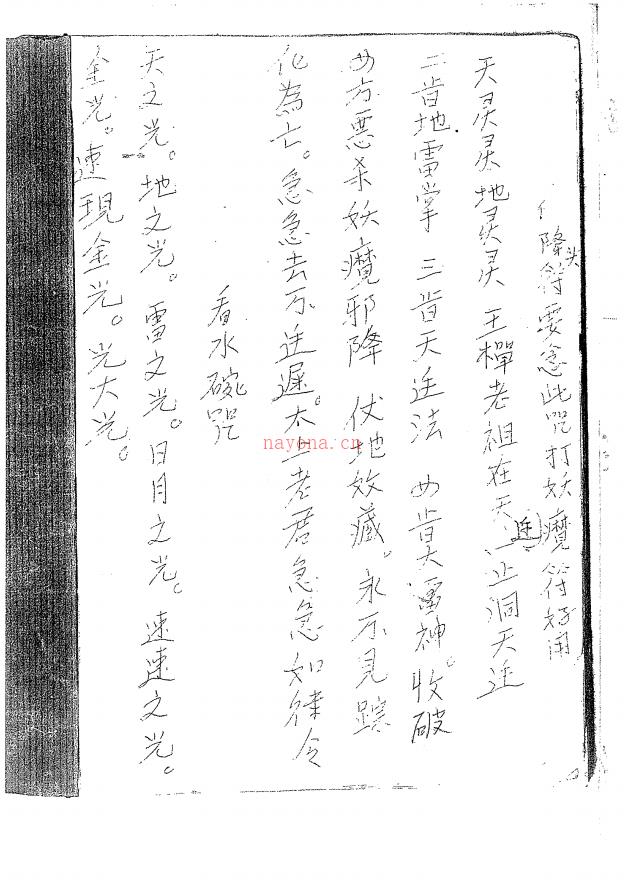 降头符要念此咒打妖魔符好用
天灵灵地灵灵 王樿老祖在天 止洞天迋
二旨地雷掌 三旨天迋法 四旨大雷神。收破
四方悪杀妖魔邪降 伏地效藏。永不見踪
化為亡。急急去不迋遲。太上老君急急如律令
看水碗咒
天之光。地之光。雷之光。日月之光。速速之光。
金光。速現金光。光大光。
nayona.cn